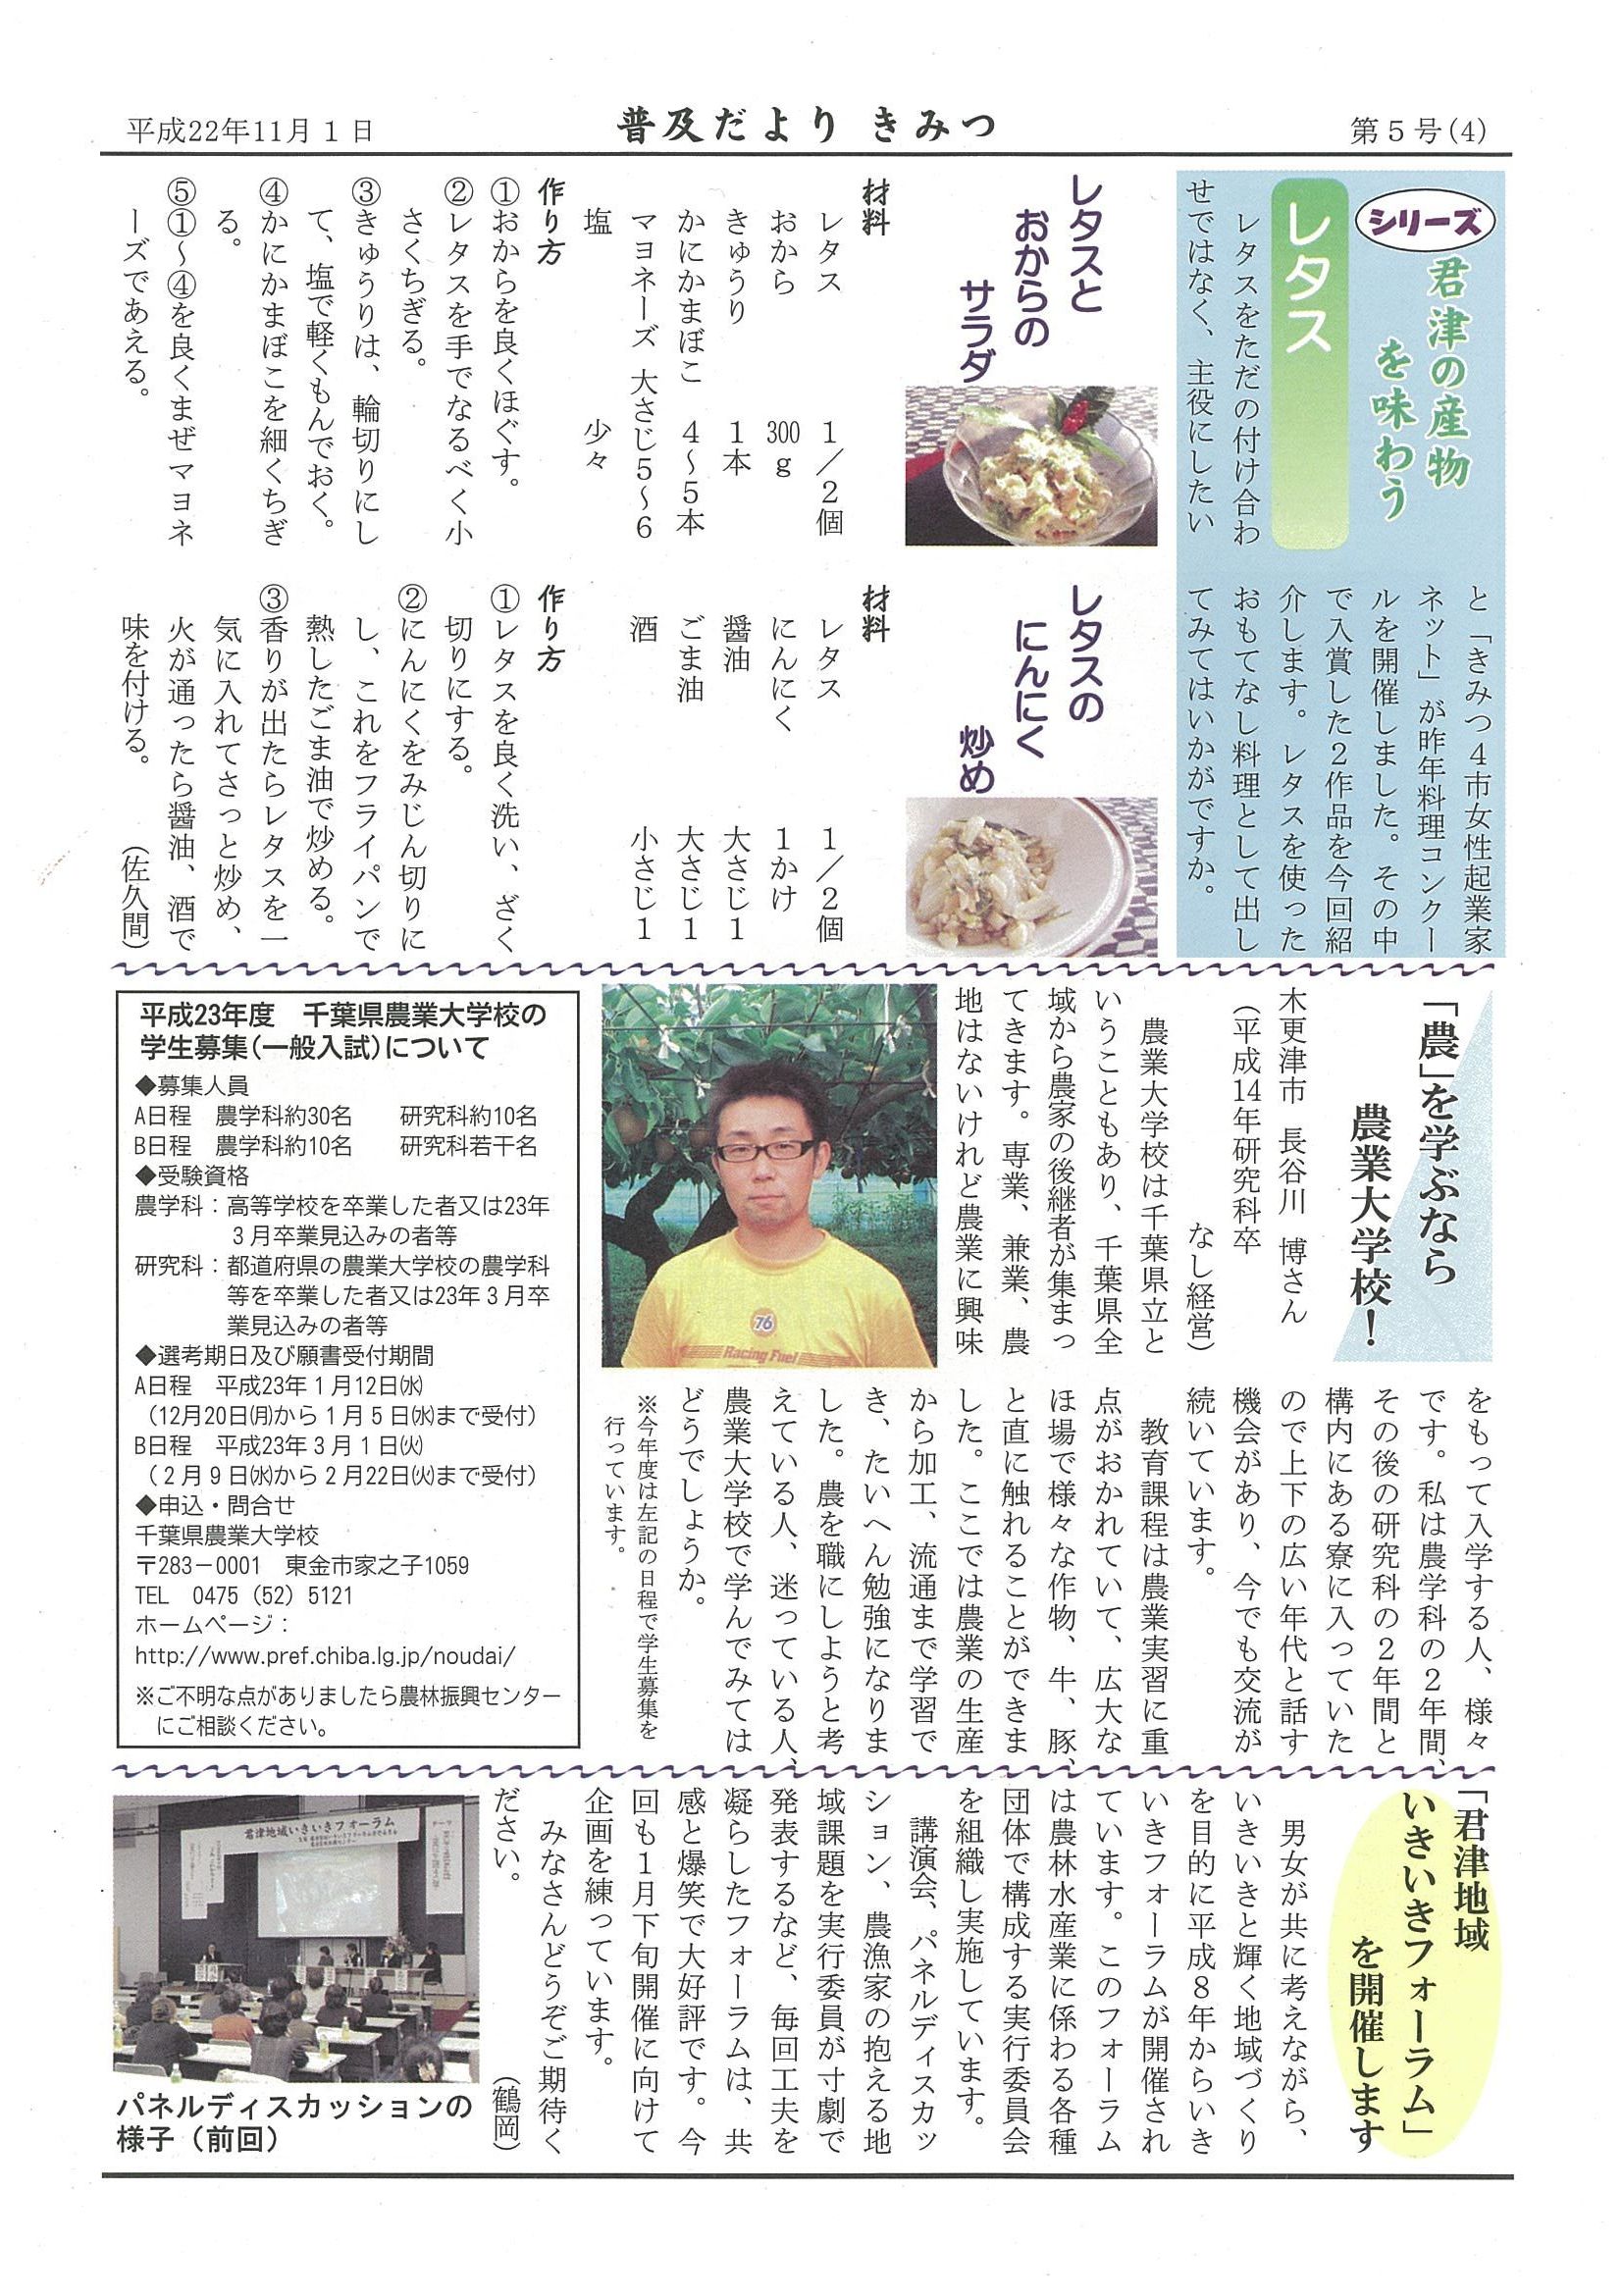 平成22年11月1日
普及だより きみつ
第5号(4)
シリーズ
君津の産物
を味わう
レタス
レタスをただの付け合わ
せではなく、主役にしたい
と「きみつ4市女性起業家
ネット」が昨年料理コンクー
ルを開催しました。その中
で入賞した2作品を今回紹
介します。レタスを使った
おもてなし料理として出し
てみてはいかがですか。
レタスと
おからの
サラダ
材料
レタス 1/2個
おから 300g
きゅうり 1本
かにかまぼこ 4〜5本
マヨネーズ 大さじ5〜6
塩 少々
作り方
①おからを良くほぐす。
②レタスを手でなるべく小
さくちぎる。
③きゅうりは、輪切りにし
て、塩で軽くもんでおく。
④かにかまぼこを細くちぎ
る。
⑤①〜④を良くまぜマヨネ
ーズであえる。
レタスの
にんにく
炒め
材料
レタス 1/2個
にんにく 1かけ
醤油 大さじ1
ごま油 大さじ1
酒 小さじ1
作り方
①レタスを良く洗い、ざく
切りにする。
②にんにくをみじん切りに
し、これをフライパンで
熱したごま油で炒める。
③香りが出たらレタスを一
気に入れてさっと炒め、
火が通ったら醤油、酒で
味を付ける。 (佐久間)
「農」を学ぶなら
農業大学校！
木更津市 長谷川 博さん
(平成14年研究科卒
なし経営)
農業大学校は千葉県立と
いうこともあり、千葉県全
域から農家の後継者が集まっ
てきます。専業、兼業、農
地はないけれど農業に興味
をもって入学する人、様々
です。私は農学科の2年間、
その後の研究科の2年間と
構内にある寮に入っていた
ので上下の広い年代と話す
機会があり、今でも交流が
続いています。
教育課程は農業実習に重
点がおかれていて、広大な
ほ場で様々な作物、牛、豚、
と直に触れることができま
した。ここでは農業の生産
から加工、流通まで学習で
き、たいへん勉強になりま
した。農を職にしようと考
えている人、迷っている人、
農業大学校で学んでみては
どうでしょうか。
※今年度は左記の日程で学生募集を
行っています。
76
Racing Fuel
平成23年度 千葉県農業大学校の
学生募集(一般入試)について
◆募集人員
A日程 農学科約30名 研究科約10名
B日程 農学科約10名 研究科若干名
◆受験資格
農学科：高等学校を卒業した者又は23年
3月卒業見込みの者等
研究科：都道府県の農業大学校の農学科
等を卒業した者又は23年3月卒
業見込みの者等
◆選考期日及び願書受付期間
A日程 平成23年1月12日㈬
(12月20日㈪から1月5日㈬まで受付)
B日程 平成23年3月1日㈫
(2月9日㈬から2月22日㈫まで受付)
◆申込・問合せ
千葉県農業大学校
〒283−0001 東金市家之子1059
TEL 0475（52）5121
ホームページ：
http://www.pref.chiba.lg.jp/noudai/
※ご不明な点がありましたら農林振興センター
にご相談ください。
「君津地域
いきいきフォーラム」
を開催します
男女が共に考えながら、
いきいきと輝く地域づくり
を目的に平成8年からいき
いきフォーラムが開催され
ています。このフォーラム
は農林水産業に係わる各種
団体で構成する実行委員会
を組織し実施しています。
講演会、パネルディスカッ
ション、農漁家の抱える地
域課題を実行委員が寸劇で
発表するなど、毎回工夫を
凝らしたフォーラムは、共
感と爆笑で大好評です。今
回も1月下旬開催に向けて
企画を練っています。
みなさんどうぞご期待く
ださい。 (鶴岡)
君津地域いきいきフォーラム
パネルディスカッションの
様子（前回）